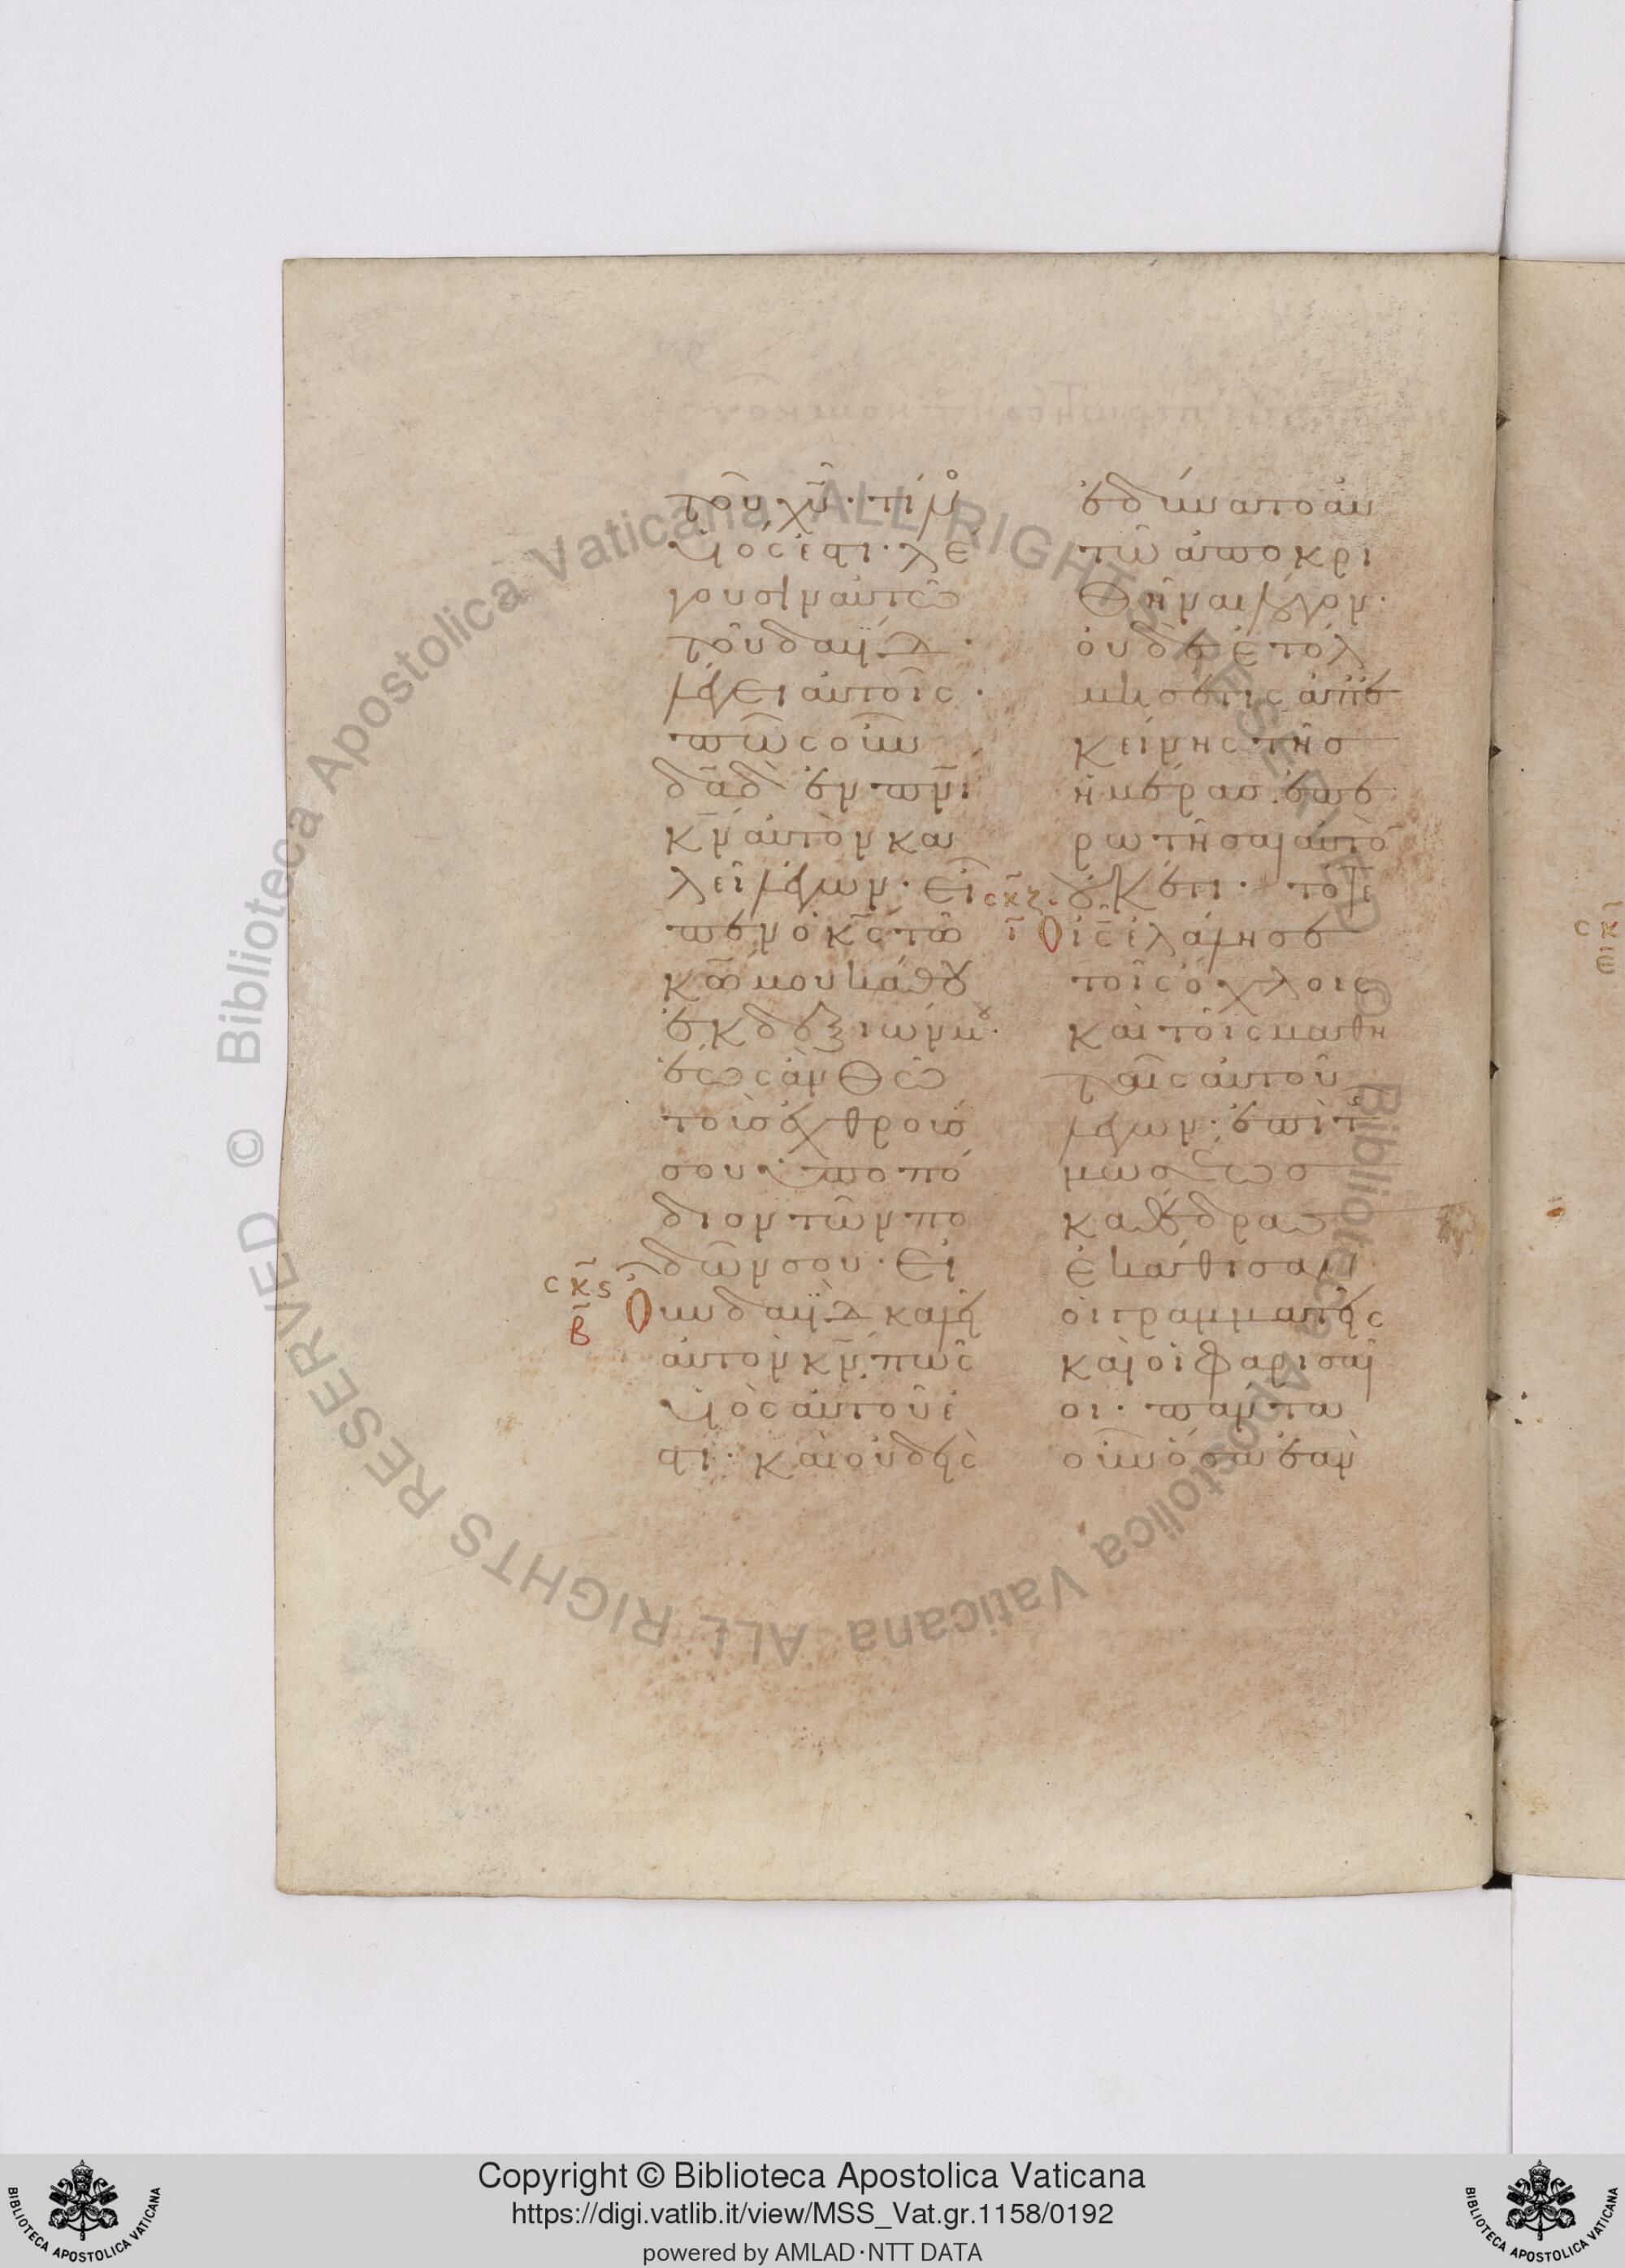 τοῦ χ̅υ̅· τίνο
υἱός ἐστι· λέ
γουσιν αὐτῶ
τοῦ δα̅δ̅·
λέγει αὐτοῖς·
πῶς οὖν
δα̅δ̅ ἐν π̅ν̅ι̅
κ̅ν̅ αὐτὸν κα
λεῖ λέγων· εἶ
πεν ὁ κ̅ς̅ τῶ
κ̅ω̅ μου κάθου
ἐκ δεξιῶν μου·
ἕως ἂν θῶ
τοὺς ἐχθρούς
σου ὑποπό
διον τῶν πο
δῶν σου· Εἰ
σκς
β
Οὖν δα̅δ̅ καλεῖ
αὐτὸν κ̅ν̅ πῶς
υἱὸς αὐτοῦ ἐ
στι· καὶ οὐδεὶς
ἐδύνατο αὐ
τῶ ἀποκρι
θῆναι λόγον·
οὐδὲ ἐτόλ
μησέ τις ἀπ' ἐ
κείνης τῆς
ἡμέρας ἐπε
ρωτῆσαι αὐτὸ
οὐκέτι· τότε
σκζ
ι
Ὁ ι̅ς̅ ἐλάλησε
τοῖς ὄχλοις
καὶ τοῖς μαθη
ταῖς αὐτοῦ
λέγων· ἐπὶ τῆς
μωσέως
καθέδρας
ἐκάθισαν
οἱ γραμματεῖς
καὶ οἱ φαρισαῖ
οι· πάντα
οὖν ὅσα ἐὰν
Copyright © Biblioteca Apostolica Vaticana
https://digi.vatlib.it/view/MSS_Vat.gr.1158/0192
powered by AMLAD·NTT DATA
BIBLIOTECA APOSTOLICA VATICANA
BIBLIOTECA APOSTOLICA VATICANA
© Biblioteca Apostolica Vaticana ALL RIGHTS RESERVED
© Biblioteca Apostolica Vaticana ALL RIGHTS RESERVED